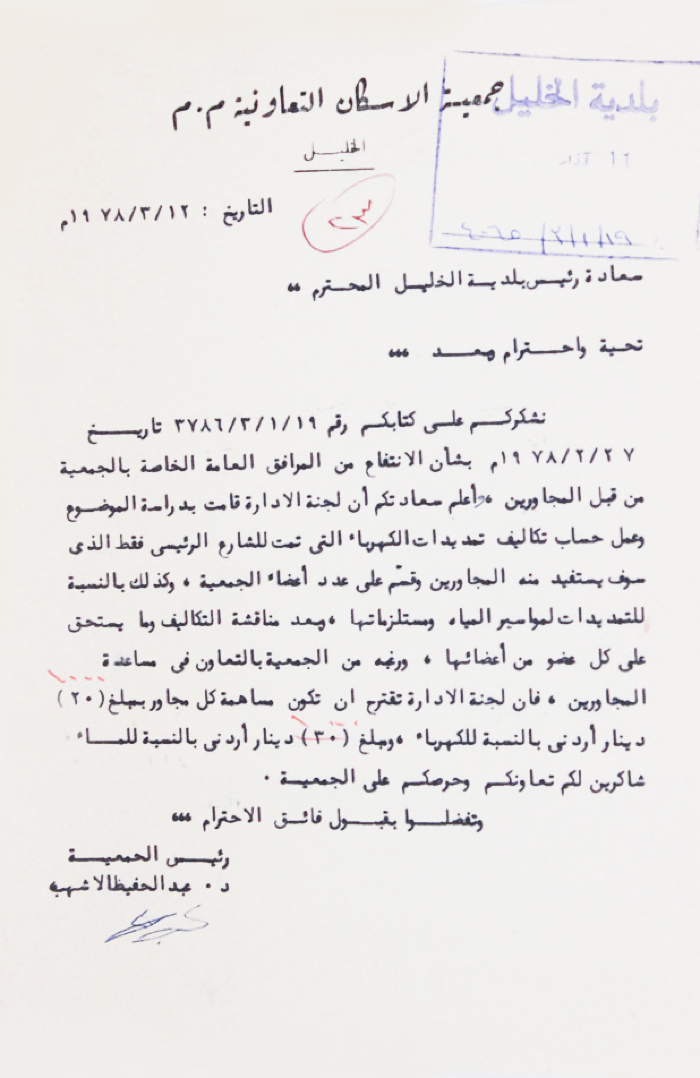 جمعية الاسكان التعاونية م.م
بلدية الخليل
الخليل
١٦ آذار
٢٣
التاريخ : ١٩٧٨/٣/١٢م
سعادة رئيس بلدية الخليل المحترم ،،
تحية واحترام وبعد ،،،
نشكركم على كتابكم رقم ٣٧٨٦/٣/١/١٩ تاريخ
١٩٧٨/٢/٢٧م بشأن الانتفاع من المرافق العامة الخاصة بالجمعية
من قبل المجاورين ، وأعلم سعادتكم أن لجنة الادارة قامت بدراسة الموضوع
وعمل حساب تكاليف تمديدات الكهرباء التى تمت للشارع الرئيسى فقط الذى
سوف يستفيد منه المجاورين وقسّم على عدد أعضاء الجمعية ، وكذلك بالنسبة
للتمديدات لمواسير المياه ومستلزماتها ، وبعد مناقشة التكاليف وما يستحق
على كل عضو من أعضائها ، ورغبه من الجمعية بالتعاون فى مساعدة
المجاورين ، فان لجنة الادارة تقترح ان تكون مساهمة كل مجاور بمبلغ (٢٠)
دينار أردنى بالنسبة للكهرباء ، ومبلغ (٣٠) دينار أردنى بالنسبة للماء
شاكرين لكم تعاونكم وحرصكم على الجمعية .
وتفضلوا بقبول فائق الاحترام ،،،
رئيس الجمعية
د . عبد الحفيظ الاشهب